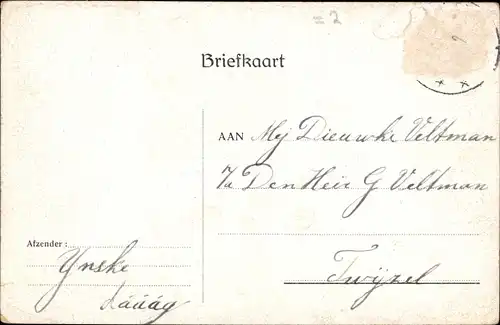 = 2
Briefkaart
AAN Mej Dieuwke Veltman
p/a Den Heer G Veltman
Twijzel
Afzender:
Ynske